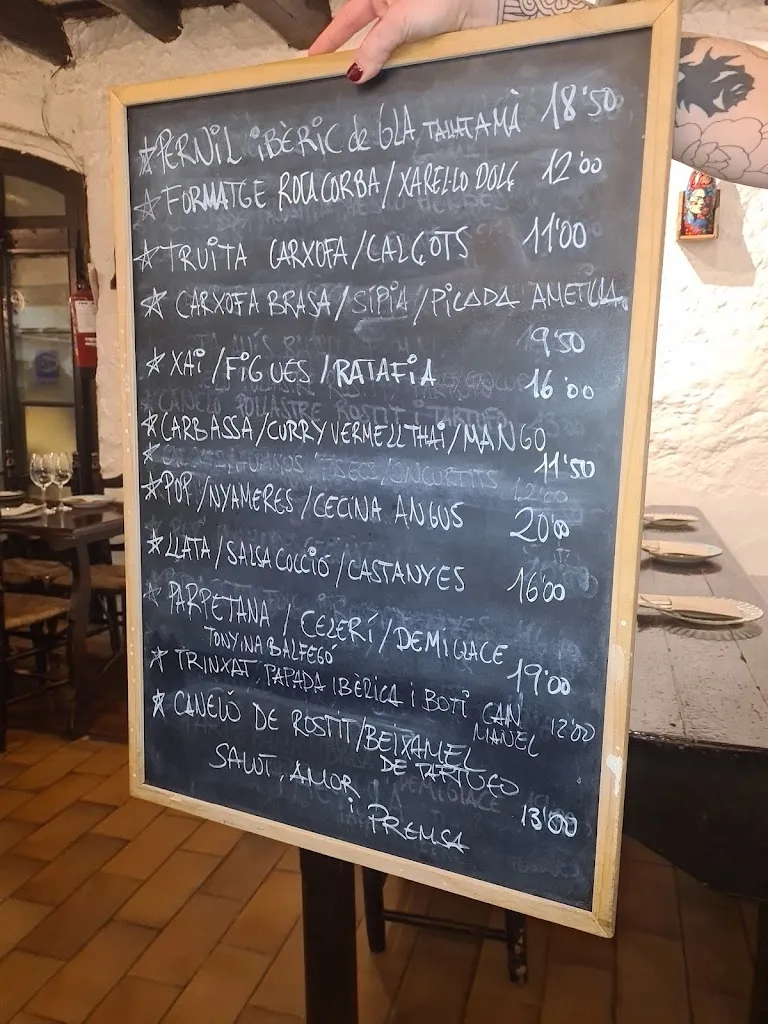 PERNIL IBÈRIC de GLA TALLAT A MÀ 18'50
FORMATGE ROCACORBA/XAREL·LO DOLÇ 12'00
TRUITA CARXOFA/CALÇOTS 11'00
CARXOFA BRASA/SÍPIA/PICADA AMETLLA
9'50
XAI/FIGUES/RATAFIA 16'00
CARBASSA/CURRY VERMELL THAI/MANGO
11'50
POP/NYAMERES/CECINA ANGUS 20'00
LLATA/SALSA COCCIÓ/CASTANYES 16'00
PARPETANA/CELERÍ/DEMIGLACE
TONYINA BALFEGÓ 19'00
TRINXAT, PAPADA IBÈRICA i BOTÍ CAN
MANEL 12'00
CANELÓ DE ROSTIT/BEIXAMEL
DE TARTUFO
13'00
SALUT, AMOR
i PREMSA